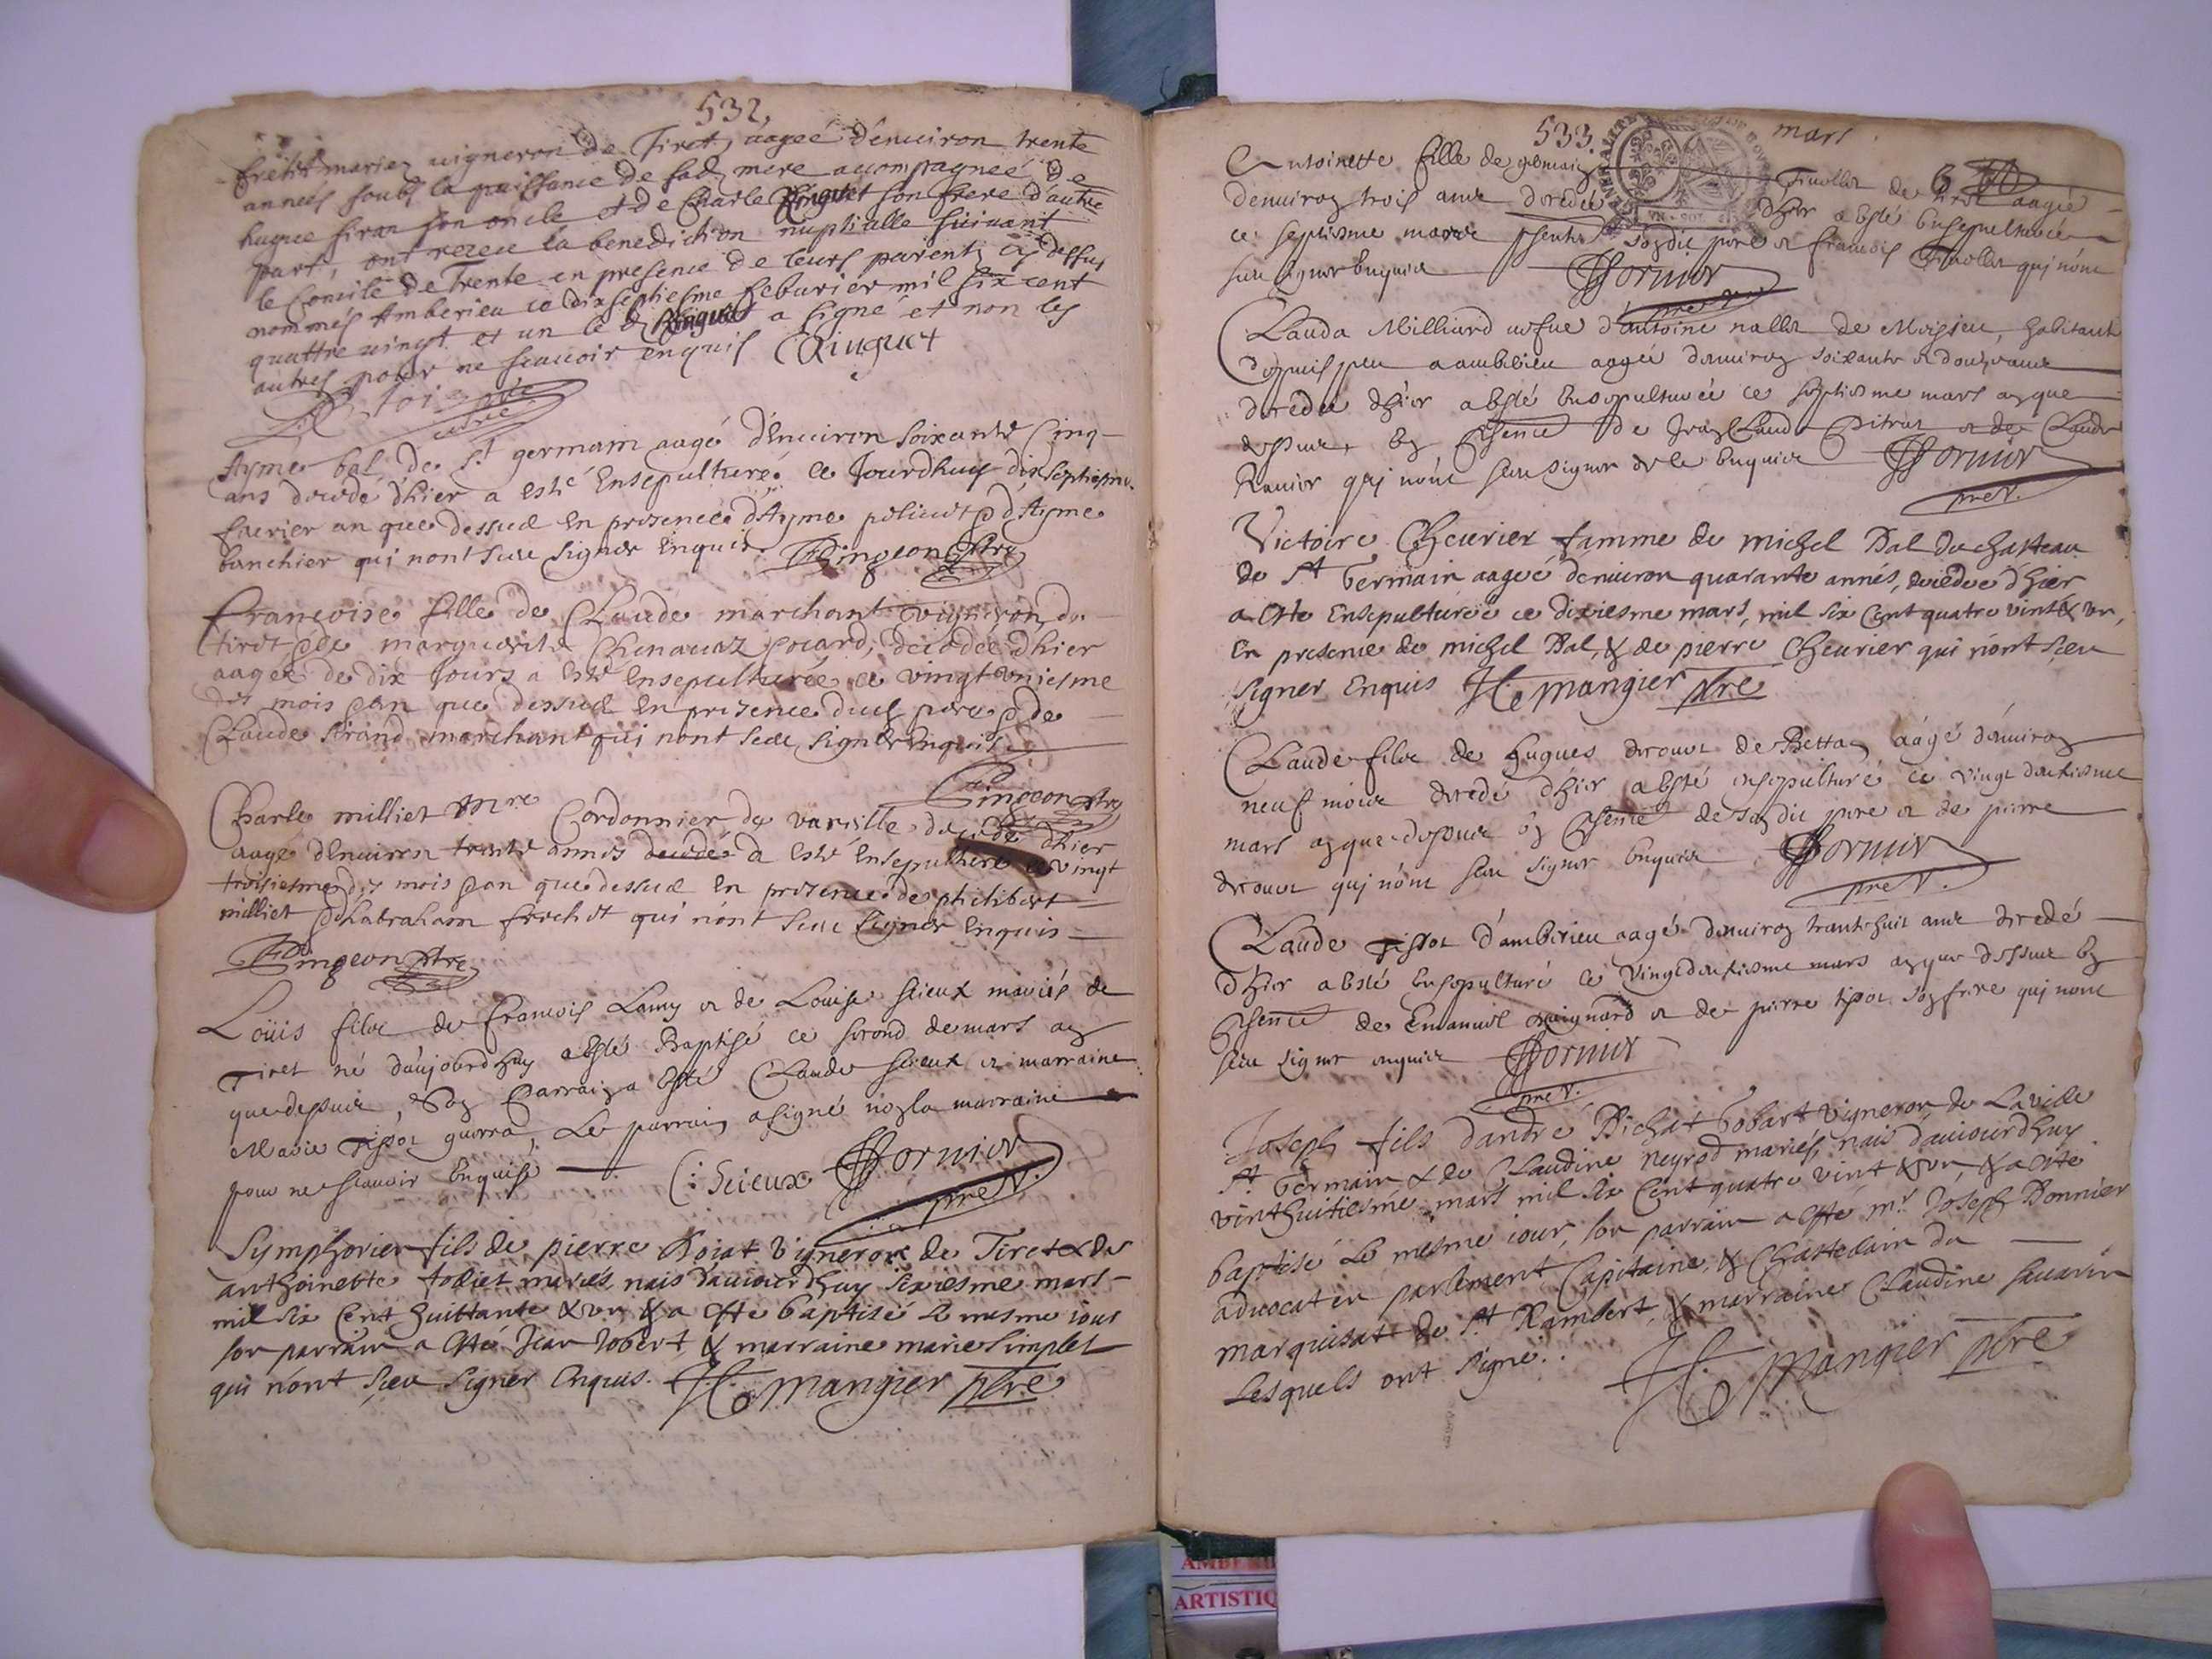 532.
mariez vigneron de Tiret, aagee d'enuiron trente
années soubs la puissance de sad. mere accompagnée de
hugue siran son oncle et de Charle Ringuet son frere d'autre
part, ont receu la benediction nuptialle suiuant
le Concile de Trente en presence de leurs parents cy dessus
nommés Amberieu ce dixseptiesme feburier mil six cent
quattre vingt et un led. Ringuet a signé et non les
autres pour ne scauoir enquis C Ringuet
curé
Ayme bal de st germain aagé d'Enuiron soixante Cinq
ans decede d'hier a esté Ensepulturé ce Jourdhuy dixseptiesme
feurier an que dessus En presence d'Ayme & d'Ayme
banchier qui nont sceu signer Enquis. Dingeon ptre
francoise fille de Claude marchant vigneron de
tiret & de marguerite decedee d'hier
aagée de dix Jours a esté Ensepulturée ce vingt vniesme
des mois & an que dessus En presence dud. pere & de
Claude sirand marchant qui nont sceu signer Enquis
Dingeon ptre
Charle milliet mre Cordonnier de vareille decede d'hier
aagé d'Enuiron trente annés decedé a esté Ensepulturé ce vingt
troisiesme des mois & an que dessus En presence de philibert
milliet & d'habraham qui n'ont sceu signer Enquis
Dingeon ptre
Loüis filz de francois Lamy et de Louise scieux mariés de
Tiret né d'aujourdhuy a esté Baptisé ce second de mars an
que dessus, son Parrain a esté Claude scieux et marraine
Marie Tissot guerra, Le parrain a signé non la marraine
pour ne scauoir Enquise C: Scieux Dornier
pre v.
Symphorien fils de pierre Boiat vigneron de Tiret & de
anthoinette mariés, nais d'auiourdhuy sixiesme mars
mil six Cent huittante & vn & a esté baptisé le mesme iour
son parrain a esté Jean Robert, & marraine marie simplet
qui n'ont sceu signer Enquis. H. Mangier ptre
533.
mars
Antoinette fille de germain de Tiret aagée
denuiron trois ans decedée d'hier a esté Ensepulturée
ce septiesme mars psents sondit pere et francois qui n'ont
sceu signer Enquis Dornier
pre v.
Clauda Milliard vefue d'antoine nallet de Moisieu, habitante
depuis peu a ambérieu aagée denuiron soixante et douze ans
decedee d'hier a esté Ensepulturée ce septiesme mars an que
dessus, En Psence de Jean Claude Pitrat et de Claude
Rauier qui n'ont sceu signer de ce Enquis Dornier
pre v.
Victoire Cheurier famme de michel Bal du chasteau
de St Germain aagée d'enuiron quarante annés, decedée d'hier
a este Ensepulturée ce dixiesme mars, mil six Cent quatre vint & vn,
En presence de michel Bal, & de pierre Cheurier qui n'ont sceu
signer Enquis H. Mangier ptre
Claude filz de hugues drouet de Bettan aagé d'enuiron
neuf mois decedé d'hier a esté ensepulturé ce vingt deuxiesme
mars an que dessus En Psence de sondit pere et de pierre
drouet qui n'ont sceu signer Enquis Dornier
pre v.
Claude Tissot d'ambérieu aagé d'enuiron trente huit ans decedé
d'hier a esté Ensepulturé ce Vingtdeuxiesme mars an que dessus En
Psence de Emanuel et de pierre tissot son frere qui nont
sceu signer enquis Dornier
pre v.
Joseph fils d'andré Bichat Gobart vigneron de La ville
St Germain & de Claudine neyrod mariés, nais d'auiourdhuy
vinthuitiesme mars mil six Cent quatre vint & vn, & a esté
baptisé le mesme iour, son parrain a esté mr Joseph Bonnier
aduocat en parlement Capitaine, & Chastelain du
marquisat de St Rambert, & marraine Claudine sauarin
Lesquels ont signé.. H. Mangier ptre
ARTISTIQ